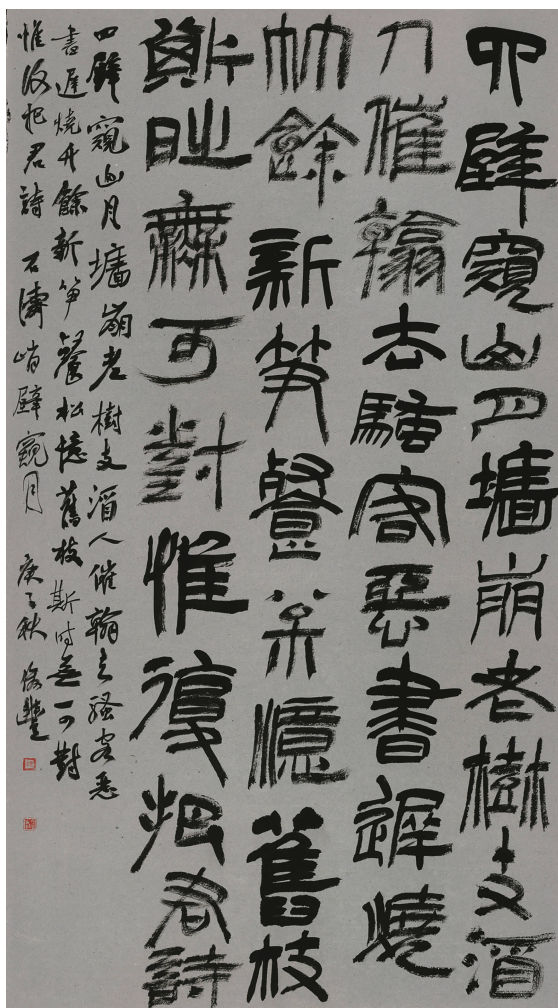 四壁窺山月墻崩老樹支酒
人催翰去騷客惡書遲燒
竹餘新笋餐松憶舊枝
斯時無可對惟復把君詩
四壁窺山月墻崩老樹支酒人催翰去騷客惡
書遲燒竹餘新笋餐松憶舊枝斯時無可對
惟復把君詩 石濤峭壁窺月 庚子秋